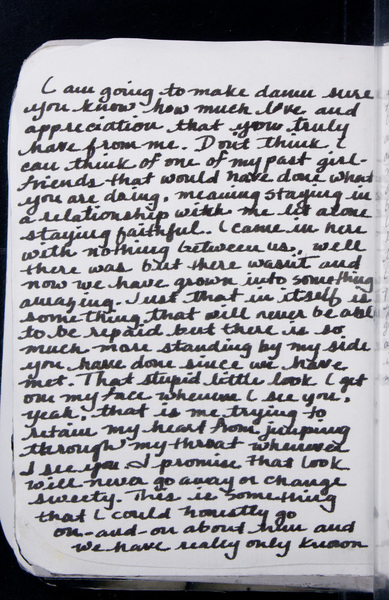 I am going to make damn sure
you know how much love and
appreciation that you truly
have from me. Dont think I
can think of one of my past girl-
friends that would have done what
you are doing, meaning staying in
a relationship with me let alone
staying faithful. I came in here
with nothing between us, well
there was but there wasnt and
now we have grown into something
amazing. Just that in itself is
something that will never be able
to be repaid but there is so
much more standing by my side
you have done since we have
met. That stupid little look I get
on my face whenever I see you,
yeah, that is me trying to
retain my heart from jumping
through my throat whenever
I see you I promise that look
will never go away or change
sweety. This is something
that I could honestly go
on-and-on about hun and
we have really only known